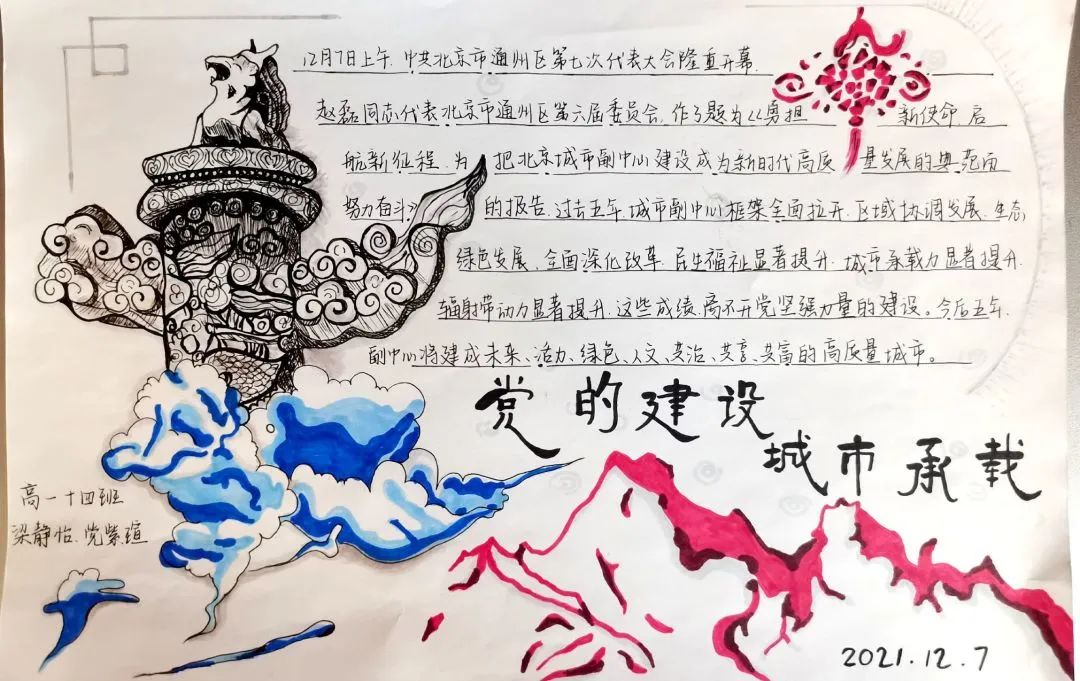 12月7日上午 中共北京市通州区第七次代表大会隆重开幕.
赵磊同志代表北京市通州区第六届委员会,作了题为《勇担 新使命 启
航新征程 为 把北京城市副中心建设成为新时代高质 量发展的典范而
努力奋斗》 的报告.过去五年,城市副中心框架全面拉开.区域协调发展.生态
绿色发展、全面深化改革.民生福祉显著提升.城市承载力显著提升.
辐射带动力显著提升.这些成绩,离不开党坚强力量的建设。今后五年.
副中心将建成未来、活力、绿色、人文、共治、共享、共富的高质量城市。
党的建设
城市承载
高一十四班
梁静怡.党紫瑄
2021.12.7